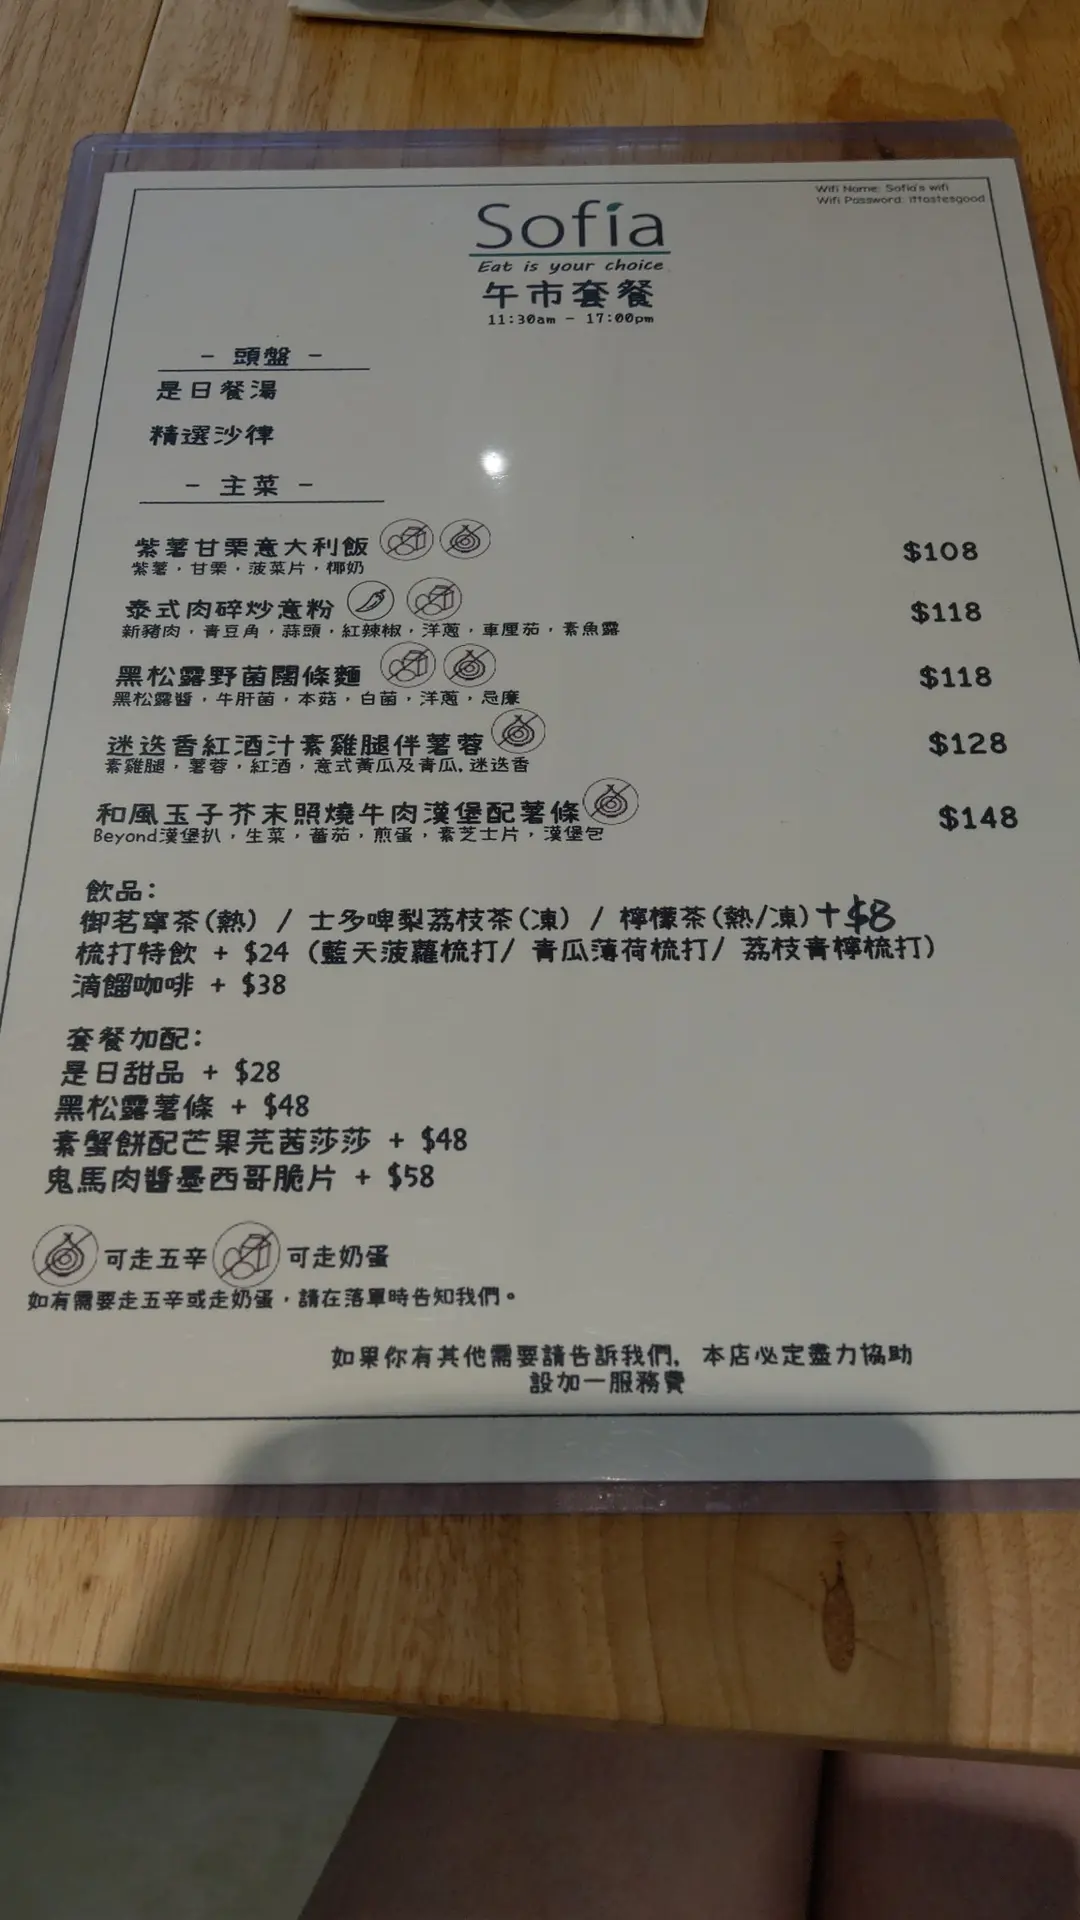 Wifi Name: Sofia's wifi
Wifi Password: ittastesgood
Sofia
Eat is your choice
午市套餐
11:30am - 17:00pm
- 頭盤 -
是日餐湯
精選沙律
- 主菜 -
紫薯甘栗意大利飯 $108
紫薯，甘栗，菠菜片，椰奶
泰式肉碎炒意粉 $118
新豬肉，青豆角，蒜頭，紅辣椒，洋蔥，車厘茄，素魚露
黑松露野菌闊條麵 $118
黑松露醬，牛肝菌，本菇，白菌，洋蔥，忌廉
迷迭香紅酒汁素雞腿伴薯蓉 $128
素雞腿，薯蓉，紅酒，意式黃瓜及青瓜,迷迭香
和風玉子芥末照燒牛肉漢堡配薯條 $148
Beyond漢堡扒，生菜，蕃茄，煎蛋，素芝士片，漢堡包
飲品:
御茗寧茶(熱) / 士多啤梨荔枝茶(凍) / 檸檬茶(熱/凍)+$8
梳打特飲 + $24 (藍天菠蘿梳打/ 青瓜薄荷梳打/ 荔枝青檸梳打)
滴餾咖啡 + $38
套餐加配:
是日甜品 + $28
黑松露薯條 + $48
素蟹餅配芒果芫茜莎莎 + $48
鬼馬肉醬墨西哥脆片 + $58
可走五辛 可走奶蛋
如有需要走五辛或走奶蛋，請在落單時告知我們。
如果你有其他需要請告訴我們, 本店必定盡力協助
設加一服務費